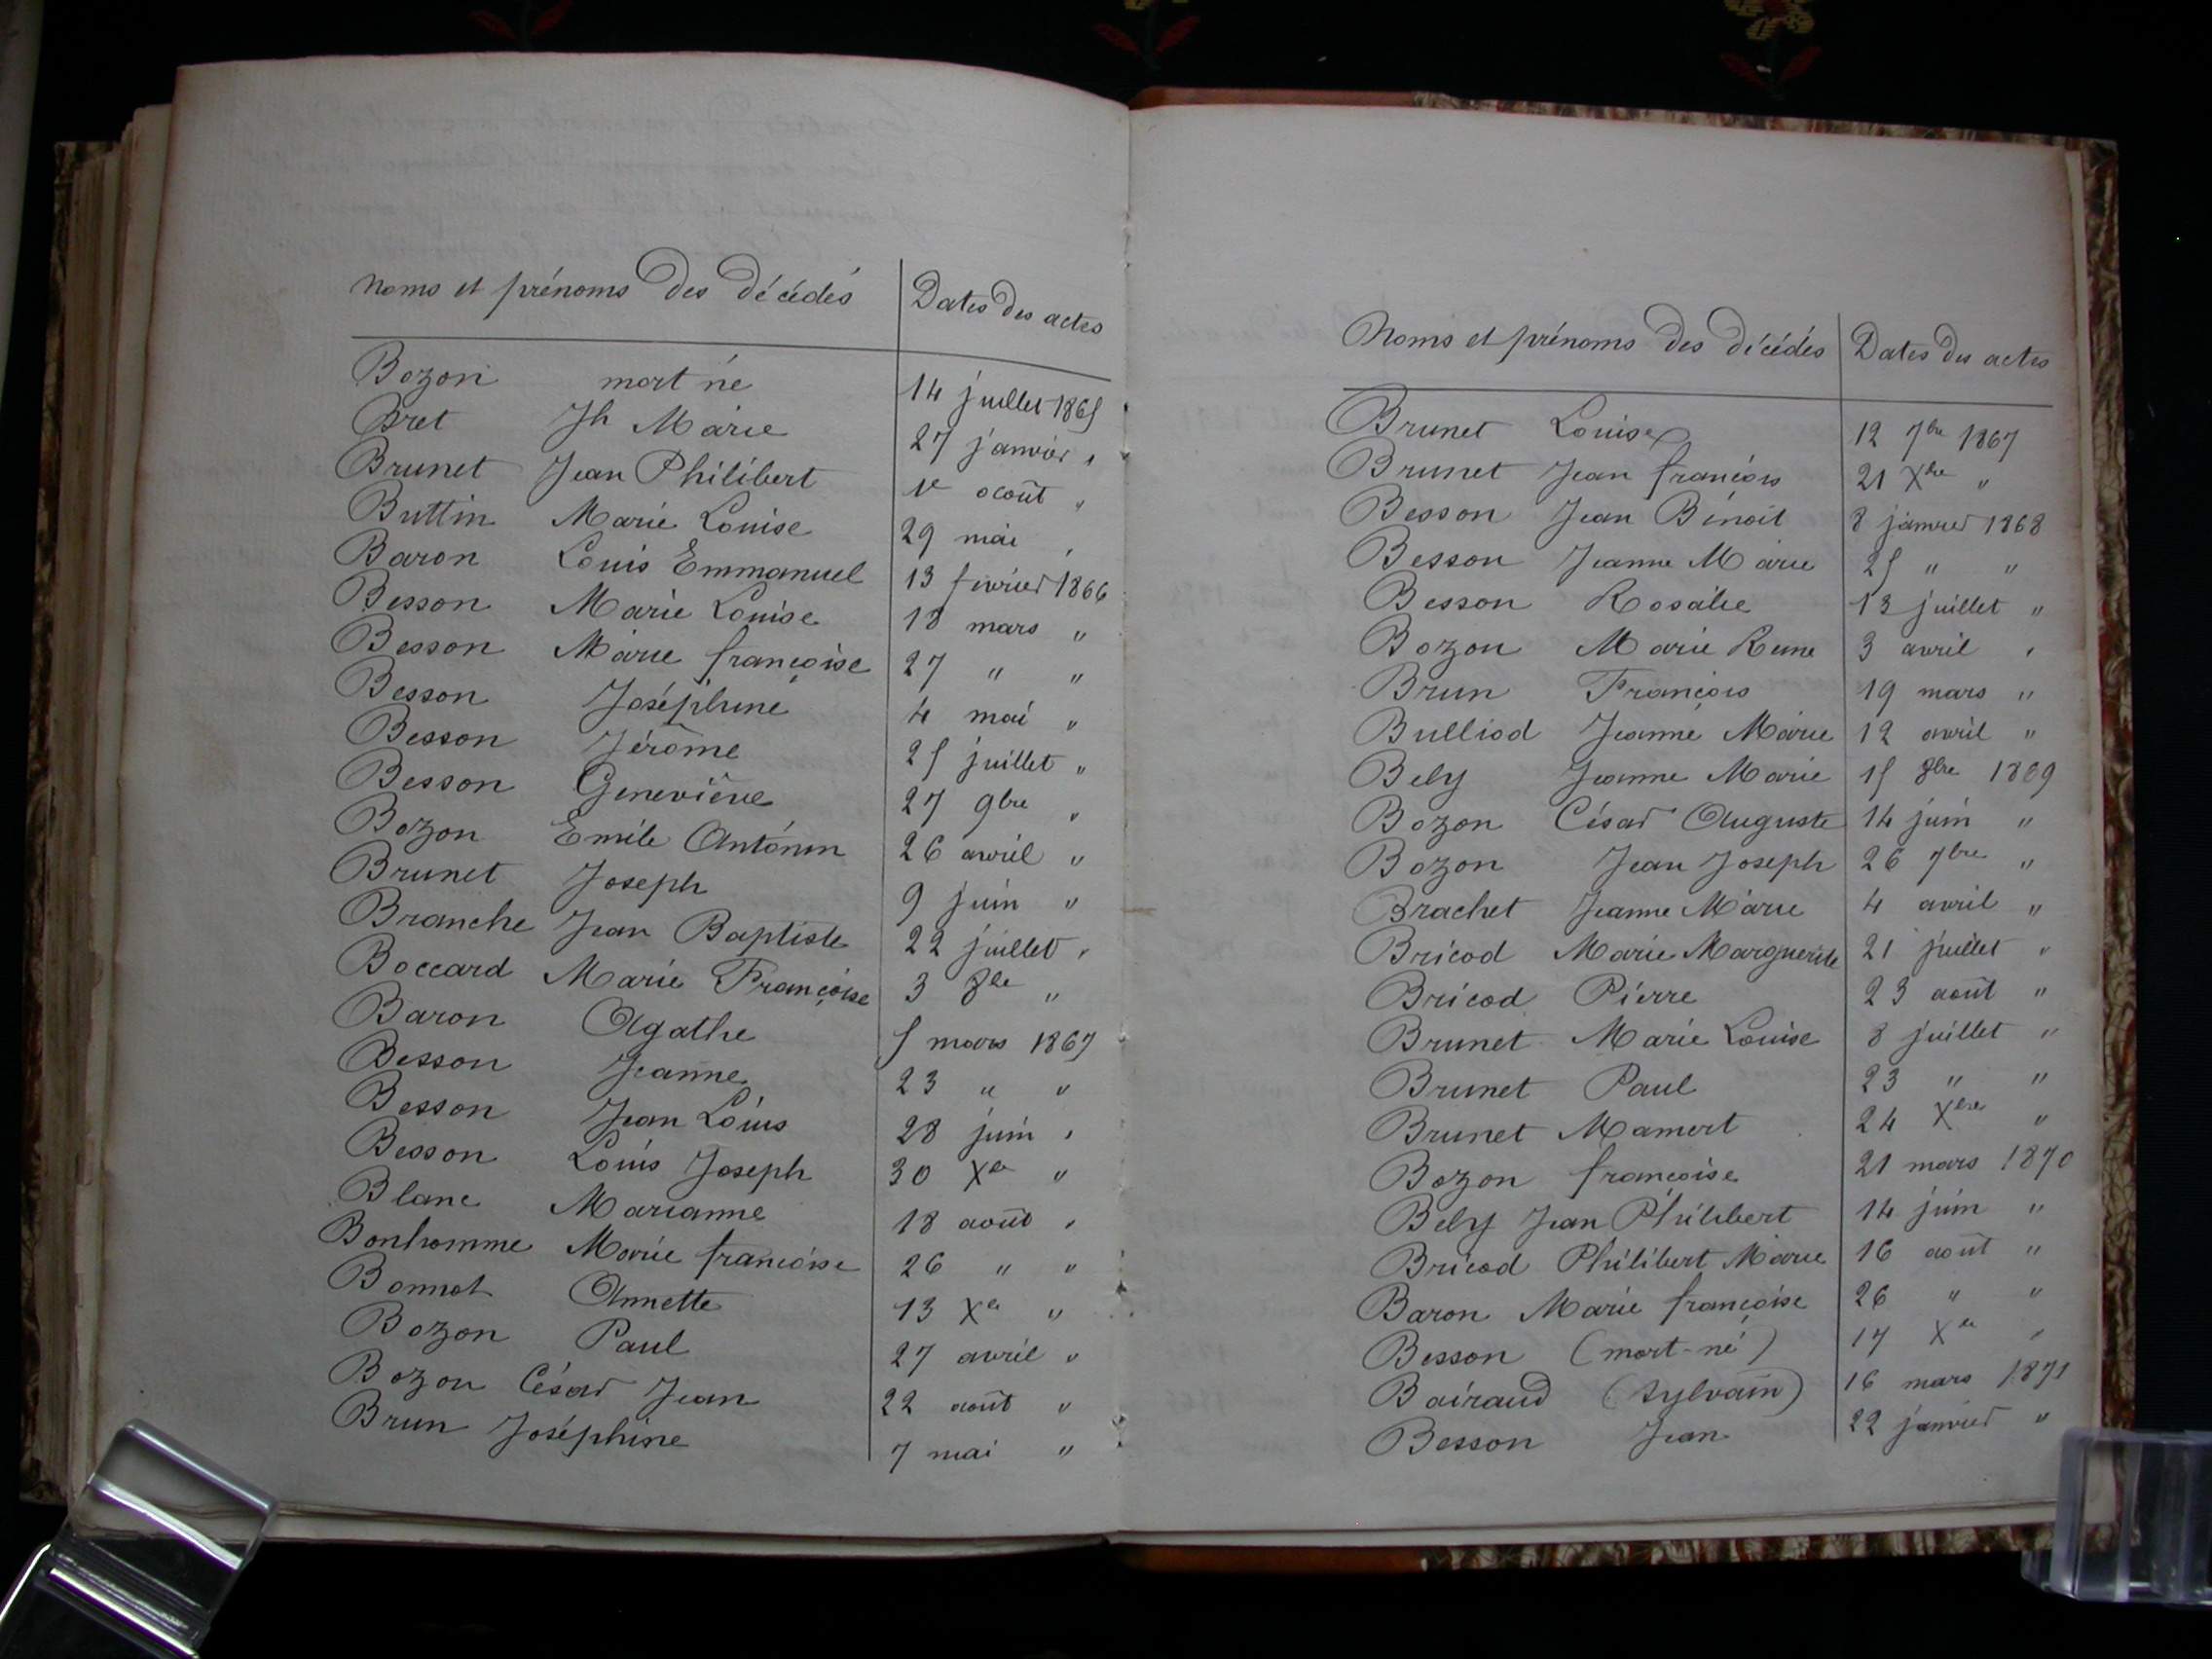 Noms et prénoms des décédés Dates des actes
Bozon mort né 14 juillet 1865
Bret Jh Marie 27 janvier "
Brunet Jean Philibert 1e août "
Buttin Marie Louise 29 mai "
Baron Louis Emmanuel 13 février 1866
Besson Marie Louise 18 mars "
Besson Marie françoise 27 " "
Besson Joséphine 4 mai "
Besson Jérôme 25 juillet "
Besson Geneviève 27 9bre "
Bozon Emile Antonin 26 avril "
Brunet Joseph 9 juin "
Branche Jean Baptiste 22 juillet "
Boccard Marie Françoise 3 8bre "
Baron Agathe 5 mars 1867
Besson Jeanne 23 " "
Besson Jean Louis 28 juin "
Besson Louis Joseph 30 Xre "
Blanc Marianne 18 août "
Bonhomme Marie françoise 26 " "
Bonnot Annette 13 Xre "
Bozon Paul 27 avril "
Bozon César Jean 22 août "
Brun Joséphine 7 mai "
Noms et prénoms des décédés Dates des actes
Brunet Louise 12 7bre 1867
Brunet Jean françois 21 Xbre "
Besson Jean Bénoit 8 janvier 1868
Besson Jeanne Marie 25 " "
Besson Rosalie 13 juillet "
Bozon Marie Reine 3 avril "
Brun François 19 mars "
Bulliod Jeanne Marie 12 avril "
Bely Jeanne Marie 15 8bre 1869
Bozon César Auguste 14 juin "
Bozon Jean Joseph 26 7bre "
Brachet Jeanne Marie 4 avril "
Bricod Marie Marguerite 21 juillet "
Bricod Pierre 23 août "
Brunet Marie Louise 8 juillet "
Brunet Paul 23 " "
Brunet Mamert 24 Xbre "
Bozon françoise 21 mars 1870
Bely Jean Philibert 14 juin "
Bricod Philibert Marie 16 août "
Baron Marie françoise 26 " "
Besson (mort-né) 17 Xre "
Bairaud (Sylvain) 16 mars 1871
Besson Jean 22 janvier "